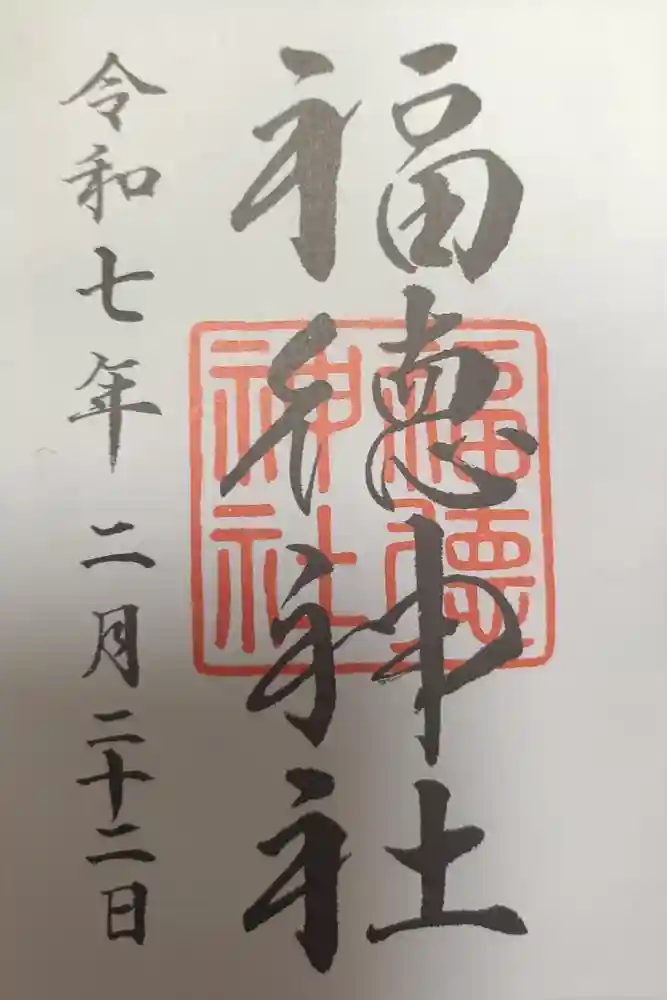 福德神社
福德
神社
令和七年二月二十二日